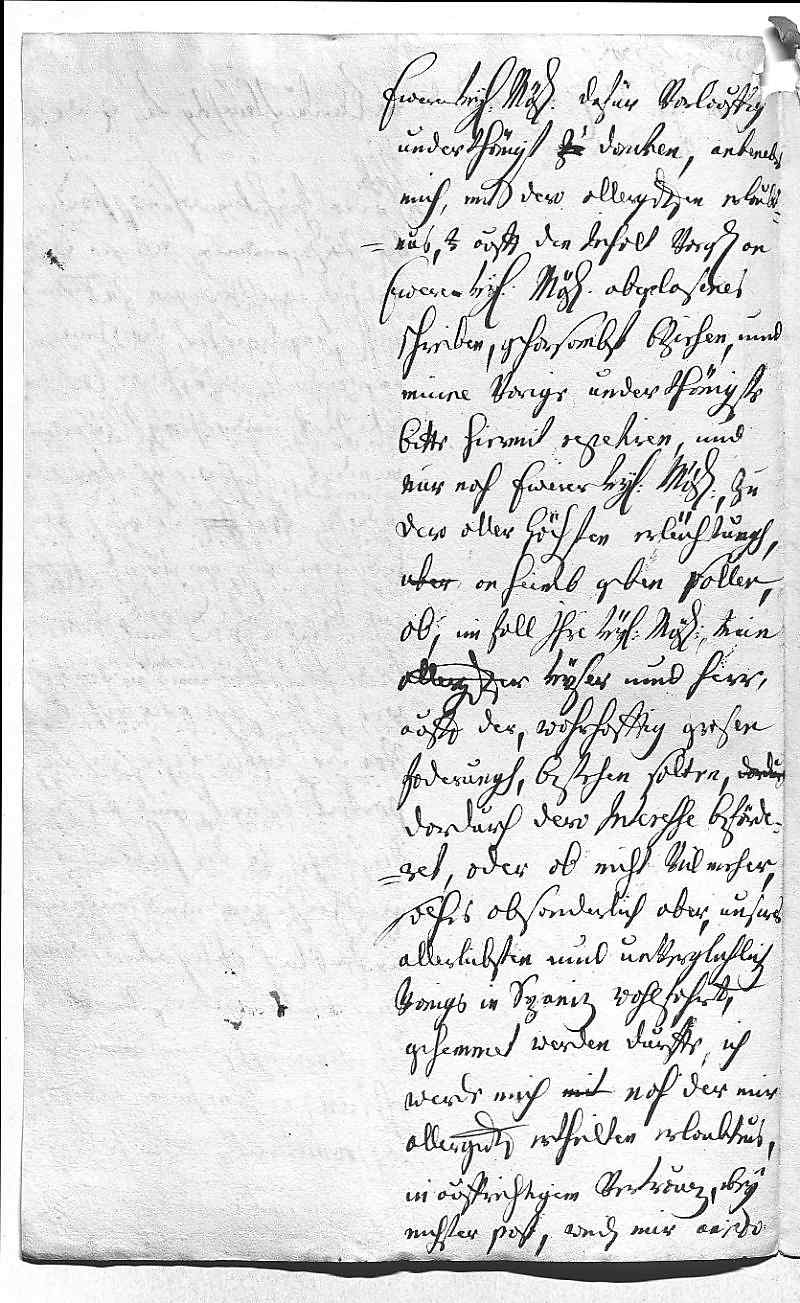 Ewerer Kayl: Mayl: dafür Vorlauffig
underthänigst zu dancken, anbenebs
mich, mit dero allergdsten erlaub-
=nus, auff den Inhalt Vorigs an
Ewere Kayl: Mayl: abgelasenes
schreiben, gehorsambst bziehen, und
meine Vorige underthänigste
bitte hiermit repetiren, und
nur noch Ewerer Kayl: Mayl:, zu
dero aller höchsten erleichtungh,
aber anheimb geben sollen,
ob, im fall Ihre Kayl: Mayl:, mein
allergdster Kayser und Herr,
auff der, wahrhafftig grosen
foderungh, bestehen solten, dardurch
dardurch dero Interesse beförde-
=ret, oder ob nicht Vilmeher,
dehs absonderlich aber, unsers
allerliebsten und unVergleichlich
Königs in Spanien wohlfahrt,
gehemmet werden durffte, ich
werde mich mit nach der mir
allergndst ertheilten erlaubtnus,
in auffrichtigem Vertrauen, bey
nechster post, weil mir anjezo